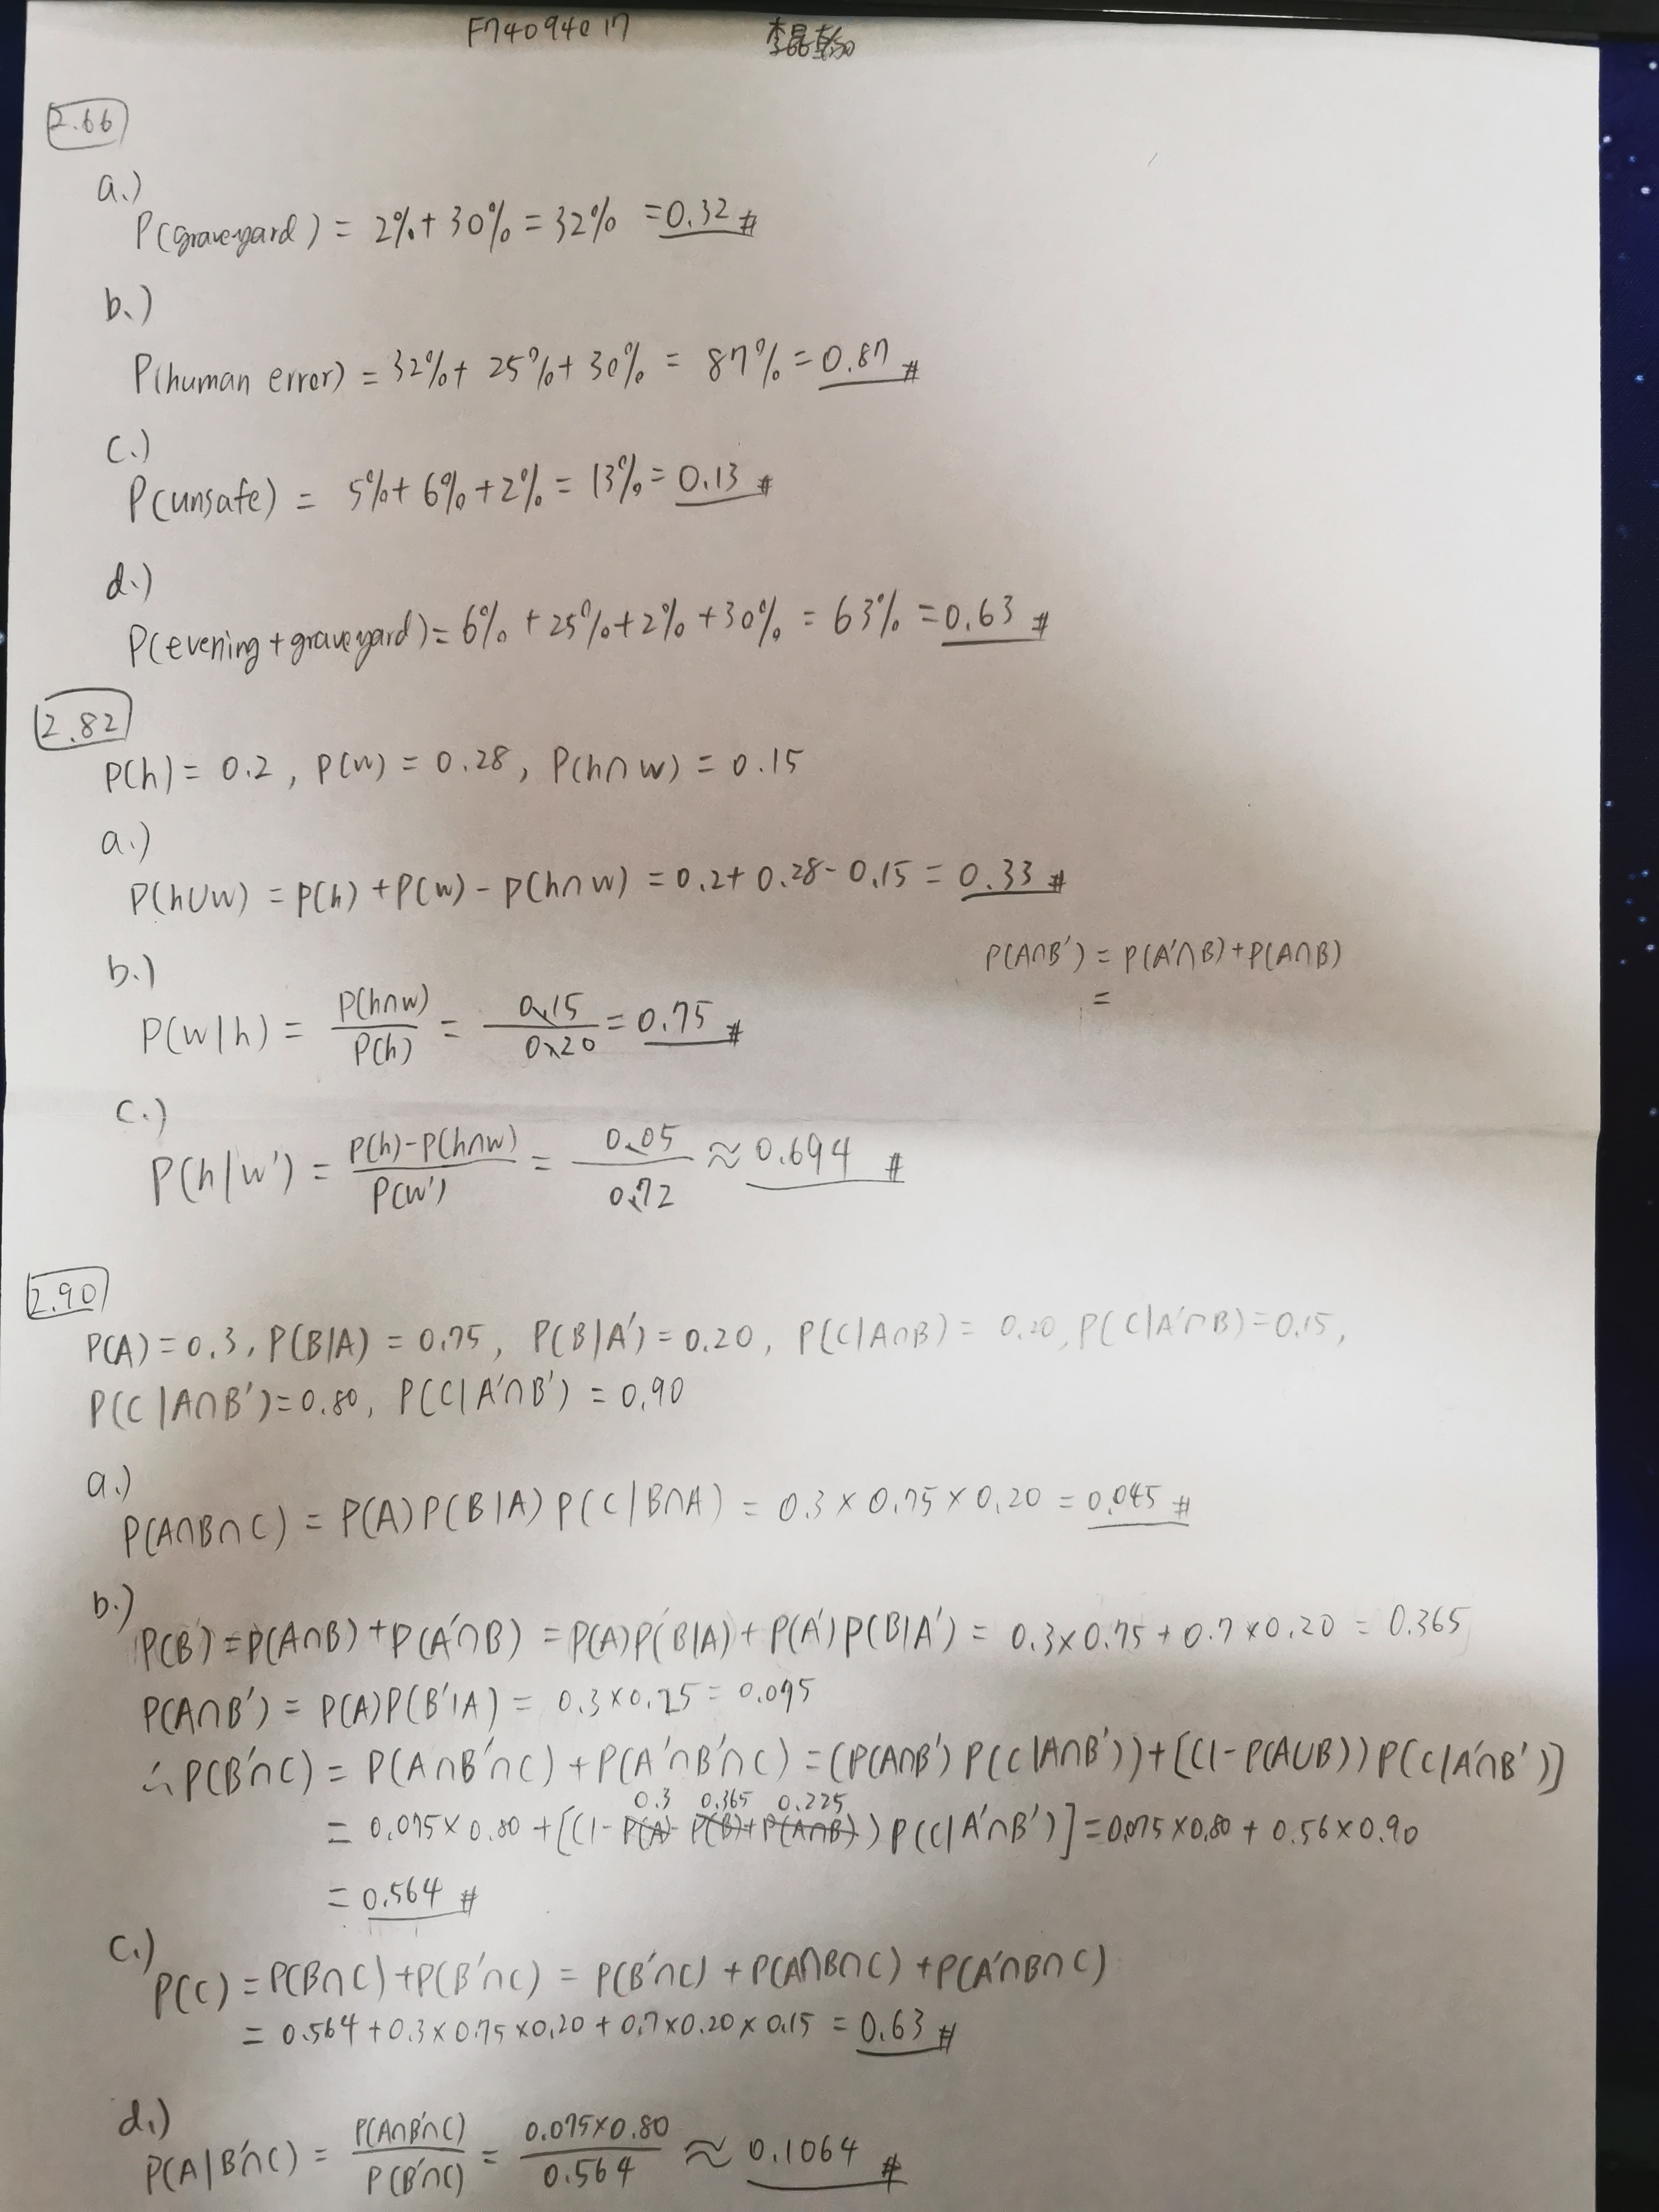 F74094017
2.66
a.)
P(graveyard) = 2%+30% = 32% = 0.32 #
b.)
P(human error) = 32%+ 25%+ 30% = 87% = 0.87 #
c.)
P(unsafe) = 5%+ 6% +2% = 13% = 0.13 #
d.)
P(evening+graveyard) = 6% +25%+2% +30% = 63% = 0.63 #
2.82
P(h) = 0.2, P(w) = 0.28, P(h∩w) = 0.15
a.)
P(h∪w) = P(h) + P(w) - P(h∩w) = 0.2+ 0.28- 0.15 = 0.33 #
P(A∩B') = P(A'∩B)+P(A∩B)
=
b.)
P(w|h) = P(h∩w)/P(h) = 0.15/0.20 = 0.75 #
c.)
P(h|w') = P(h)-P(h∩w)/P(w') = 0.05/0.72 ≈ 0.694 #
2.90
P(A) = 0.3, P(B|A) = 0.75, P(B|A') = 0.20, P(C|A∩B) = 0.20, P(C|A'∩B) = 0.15,
P(C|A∩B') = 0.80, P(C|A'∩B') = 0.90
a.)
P(A∩B∩C) = P(A)P(B|A)P(C|B∩A) = 0.3 × 0.75 × 0.20 = 0.045 #
b.)
P(B) = P(A∩B) + P(A'∩B) = P(A)P(B|A) + P(A')P(B|A') = 0.3×0.75 + 0.7×0.20 = 0.365
P(A∩B') = P(A)P(B'|A) = 0.3×0.25 = 0.075
∴ P(B'∩C) = P(A∩B'∩C) + P(A'∩B'∩C) = (P(A∩B') P(C|A∩B')) + [(1-P(A∪B)) P(C|A'∩B')]
0.3 0.365 0.225
= 0.075× 0.80 + [(1- P(A)- P(B)+P(A∩B)) P(C|A'∩B')] = 0.075×0.80 + 0.56×0.90
= 0.564 #
c.)
P(C) = P(B∩C) + P(B'∩C) = P(B'∩C) + P(A∩B∩C) + P(A'∩B∩C)
= 0.564 + 0.3×0.75×0.20 + 0.7×0.20×0.15 = 0.63 #
d.)
P(A|B'∩C) = P(A∩B'∩C)/P(B'∩C) = 0.075×0.80/0.564 ≈ 0.1064 #